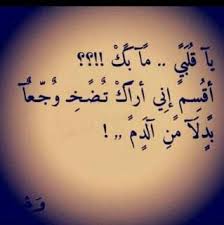 يآ قُلبَيَ .. مَآ بكَْ !!؟؟
أقسِم إنَي أراكَْ تضَخِ وجَعآ
بدِلآ مَنِ آلدِمَ ,, !